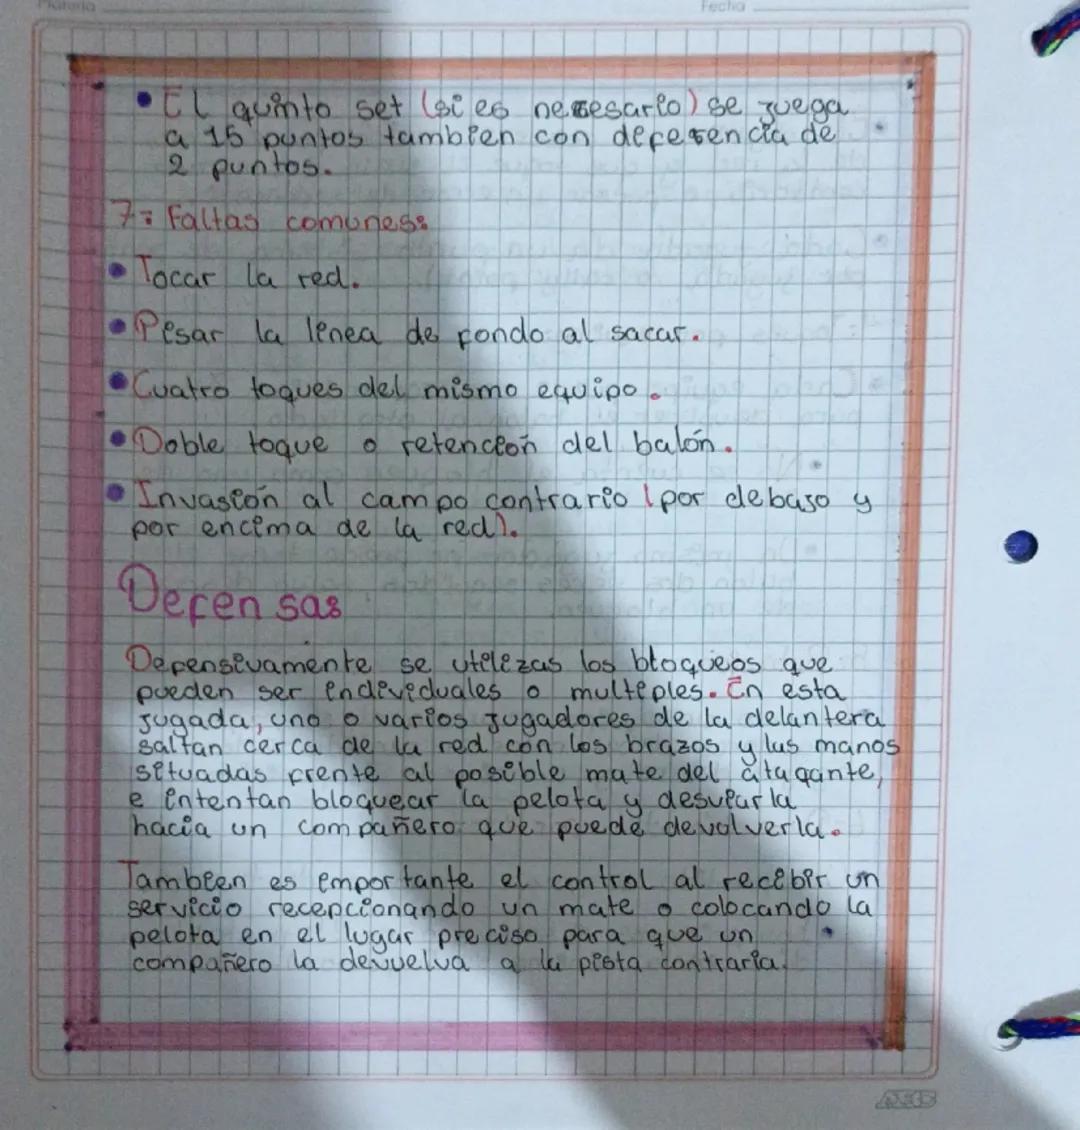 Materia
Fecha
• El quinto set (si es nesesario) se juega
a 15 puntos tambien con diferencia de
2 puntos.
7: Faltas comunes:
• Tocar la red.
• Pisar la linea de fondo al sacar.
• Cuatro toques del mismo equipo.
• Doble toque o retención del balón.
• Invasión al campo contrario (por debajo y
por encima de la red).
Defensas
Defensivamente se utilizas los bloqueos que
pueden ser individuales o multiples. En esta
jugada, uno o varios jugadores de la delantera
saltan cerca de la red con los brazos y las manos
situadas frente al posible mate del atagante,
e intentan bloquear la pelota y desviarla
hacia un compañero que puede devolverla.
Tambien es importante el control al recibir un
servicio recepcionando un mate o colocando la
pelota en el lugar preciso para que un
compañero la devuelva a la pista contraria.